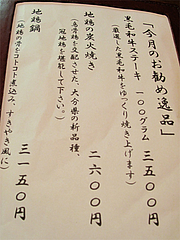 「今月のお勧め逸品」
黒毛和牛ステーキ 一〇〇グラム 三五〇〇円
(厳選した黒毛和牛をゆっくり焼き上げます)
地鶏の炭火焼き 二六〇〇円
(烏骨鶏を交配させた、大分県の新品種、
冠地鶏を堪能して下さい。)
地鶏鍋 三一五〇円
(地鶏の骨をコトコト煮込み、すきやき風に)